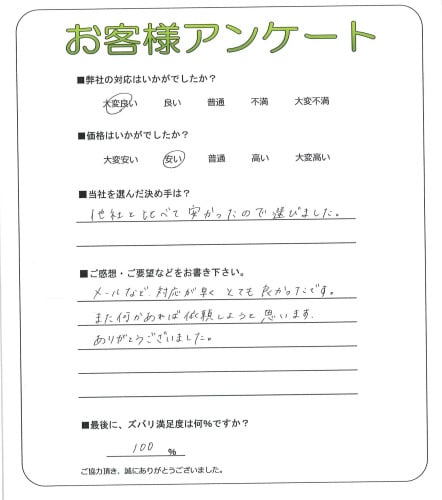 お客様アンケート
■弊社の対応はいかがでしたか?
大変良い 良い 普通 不満 大変不満
■価格はいかがでしたか?
大変安い 安い 普通 高い 大変高い
■当社を選んだ決め手は?
他社と比べて安かったので選びました。
■ご感想・ご要望などをお書き下さい。
メールなど、対応が早くとても良かったです。
また何かあれば依頼しようと思います。
ありがとうございました。
■最後に、ズバリ満足度は何%ですか?
100 %
ご協力頂き、誠にありがとうございました。